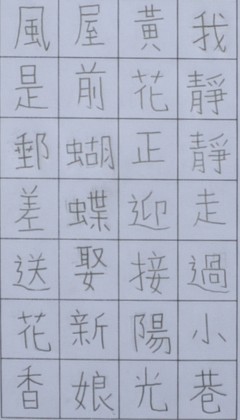 我靜靜走過小巷
黃花正迎接陽光
屋前蝴蝶娶新娘
風是郵差送花香